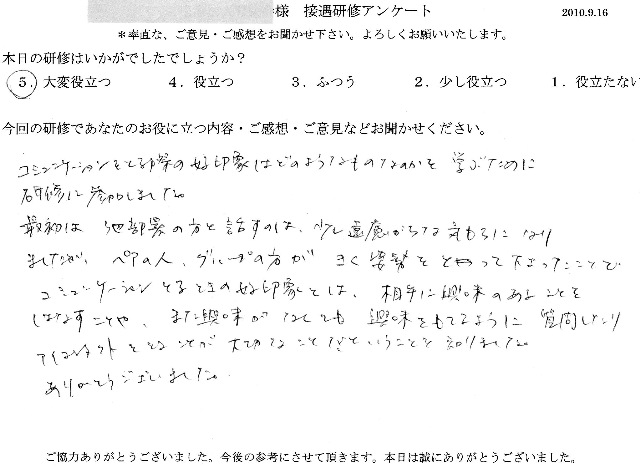 様 接遇研修アンケート 2010.9.16
＊率直な、ご意見・ご感想をお聞かせ下さい。よろしくお願いいたします。
本日の研修はいかがでしたでしょうか？
5. 大変役立つ 4. 役立つ 3. ふつう 2. 少し役立つ 1. 役立たない
今回の研修であなたのお役に立つ内容・ご感想・ご意見などお聞かせください。
コミュニケーションをとる際の好印象はどのようなものなのかを 学ぶために
研修に参加しました。
最初は 他部署の方と話すのは、少し遠慮がちな気もちになり
ましたが、ペアの人、グループの方が きく姿勢を とって下さったことで
コミュニケーションとるときの好印象とは、相手に興味のあることを
はなすことや、また興味がなくても 興味をもてるように 質問したり
アイコンタクトをとることが 大切なことだということを 知りました。
ありがとうございました。
ご協力ありがとうございました。今後の参考にさせて頂きます。本日は誠にありがとうございました。